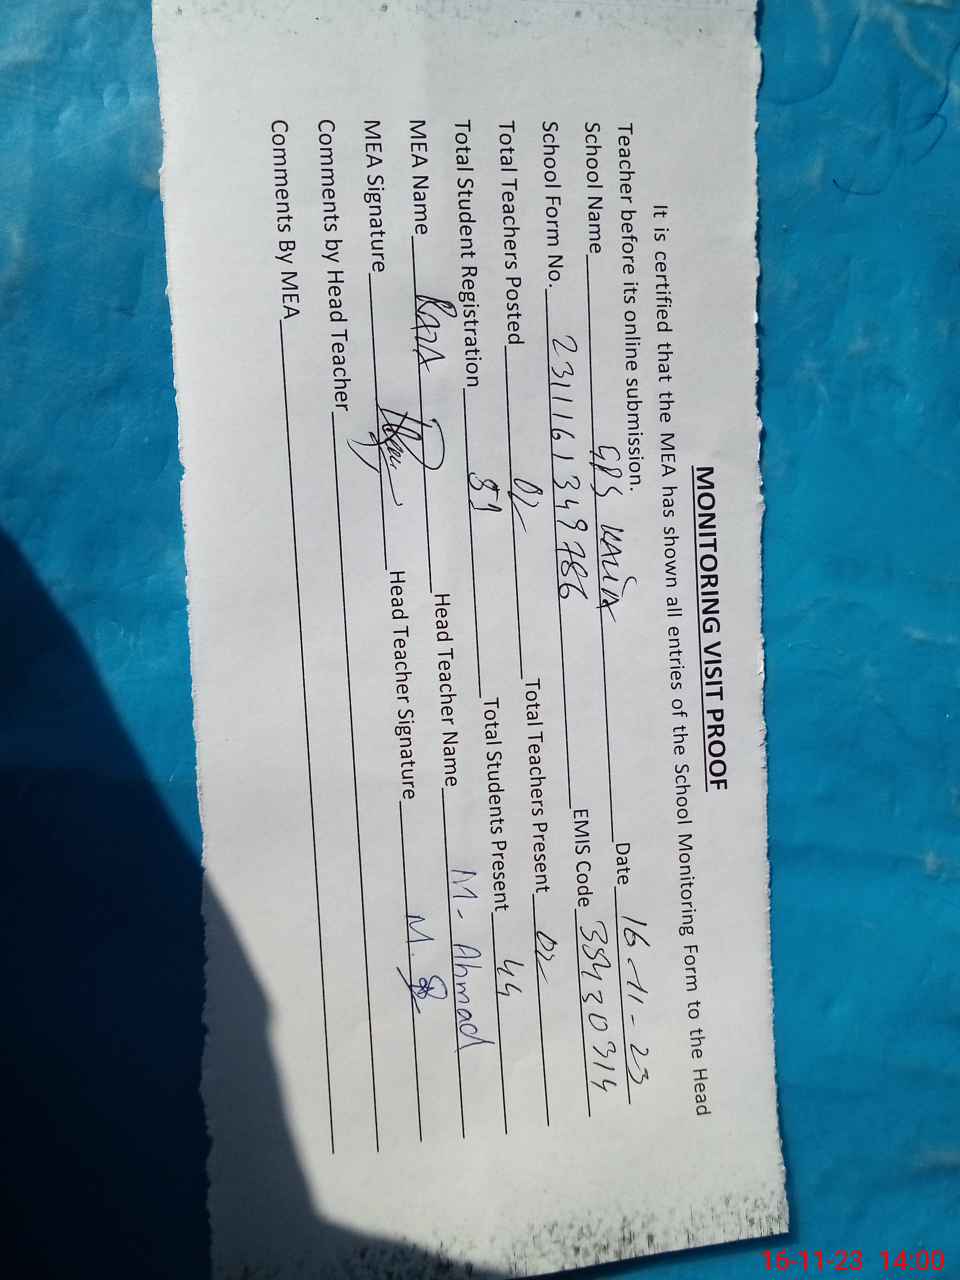 MONITORING VISIT PROOF
It is certified that the MEA has shown all entries of the School Monitoring Form to the Head
Teacher before its online submission.
School Name GPS KALIA Date 16-11-23
School Form No. 2311161349786 EMIS Code 38430314
Total Teachers Posted 02 Total Teachers Present 02
Total Student Registration 51 Total Students Present 44
MEA Name RAZA Head Teacher Name M. Ahmad
MEA Signature Head Teacher Signature M.
Comments by Head Teacher
Comments By MEA
16-11-23 14:00